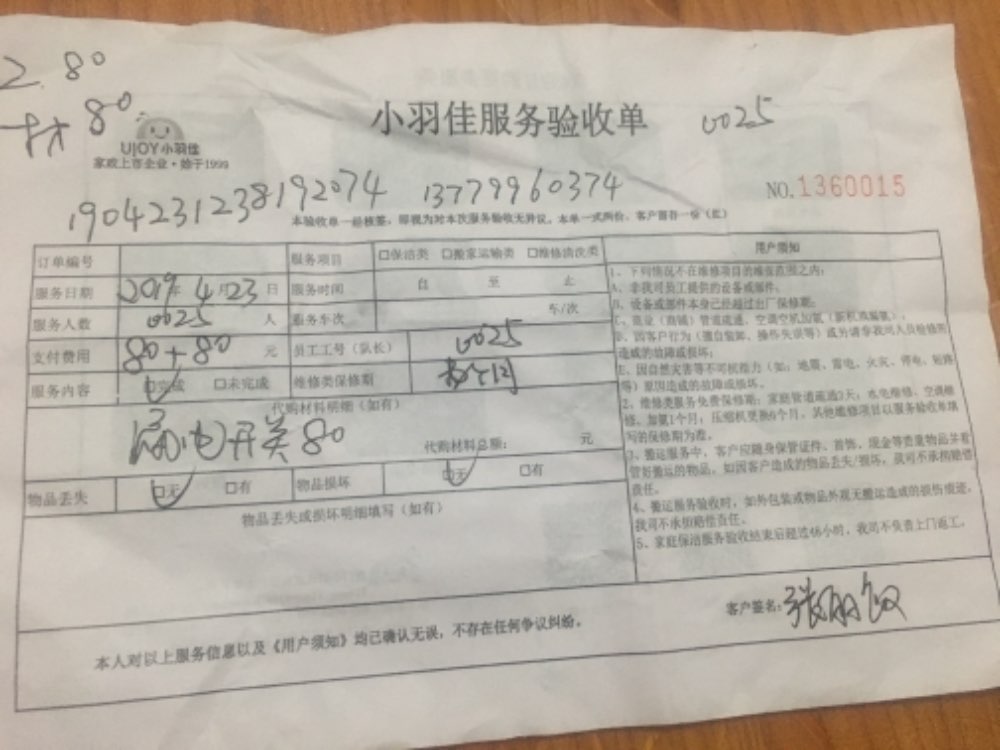 2. 80
材 80
小羽佳服务验收单
0025
UJOY小羽佳
家政上市企业·始于1999
1904231238192074 13779960374
NO.1360015
本验收单一经核签，即视为对本次服务验收无异议。本单一式两份，客户留存一份（红）
订单编号 服务项目 □保洁类 □搬家运输类 □维修清洗类
服务日期 2019年4月23日 服务时间 自 至 止
服务人数 0025 人 服务车次 车/次
支付费用 80+80 元 员工工号（队长） 0025
服务内容 □完成 □未完成 维修类保修期
代购材料明细（如有）
漏电开关80
代购材料总额： 元
物品丢失 □无 □有 物品损坏 □无 □有
物品丢失或损坏明细填写（如有）
用户须知
1、下列情况不在维修项目的维保范围之内：
A、非我司员工提供的设备或部件。
B、设备或部件本身已经超过出厂保修期；
C、商业（商铺）管道疏通、空调空机加氟（新机或漏氟）。
D、因客户行为（擅自装卸、操作失误等）或另请非我司人员检修所
造成的故障或损坏；
E、因自然灾害等不可抗力（如：地震、雷电、火灾、停电、短路
等）原因造成的故障或损坏。
2、维修类服务免费保修期：家庭管道疏通3天，水电维修、空调维
修、加氟1个月，压缩机更换6个月，其他维修项目以服务验收单填
写的保修期为准。
3、搬运服务中，客户应随身保管证件、首饰、现金等贵重物品并看
管好搬运的物品，如因客户造成的物品丢失/损坏，我司不承担赔偿
责任。
4、搬运服务验收时，如外包装或物品外观无搬运造成的损伤痕迹，
我司不承担赔偿责任。
5、家庭保洁服务验收结束后超过48小时，我司不负责上门返工。
客户签名：张丽钗
本人对以上服务信息以及《用户须知》均已确认无误，不存在任何争议纠纷。